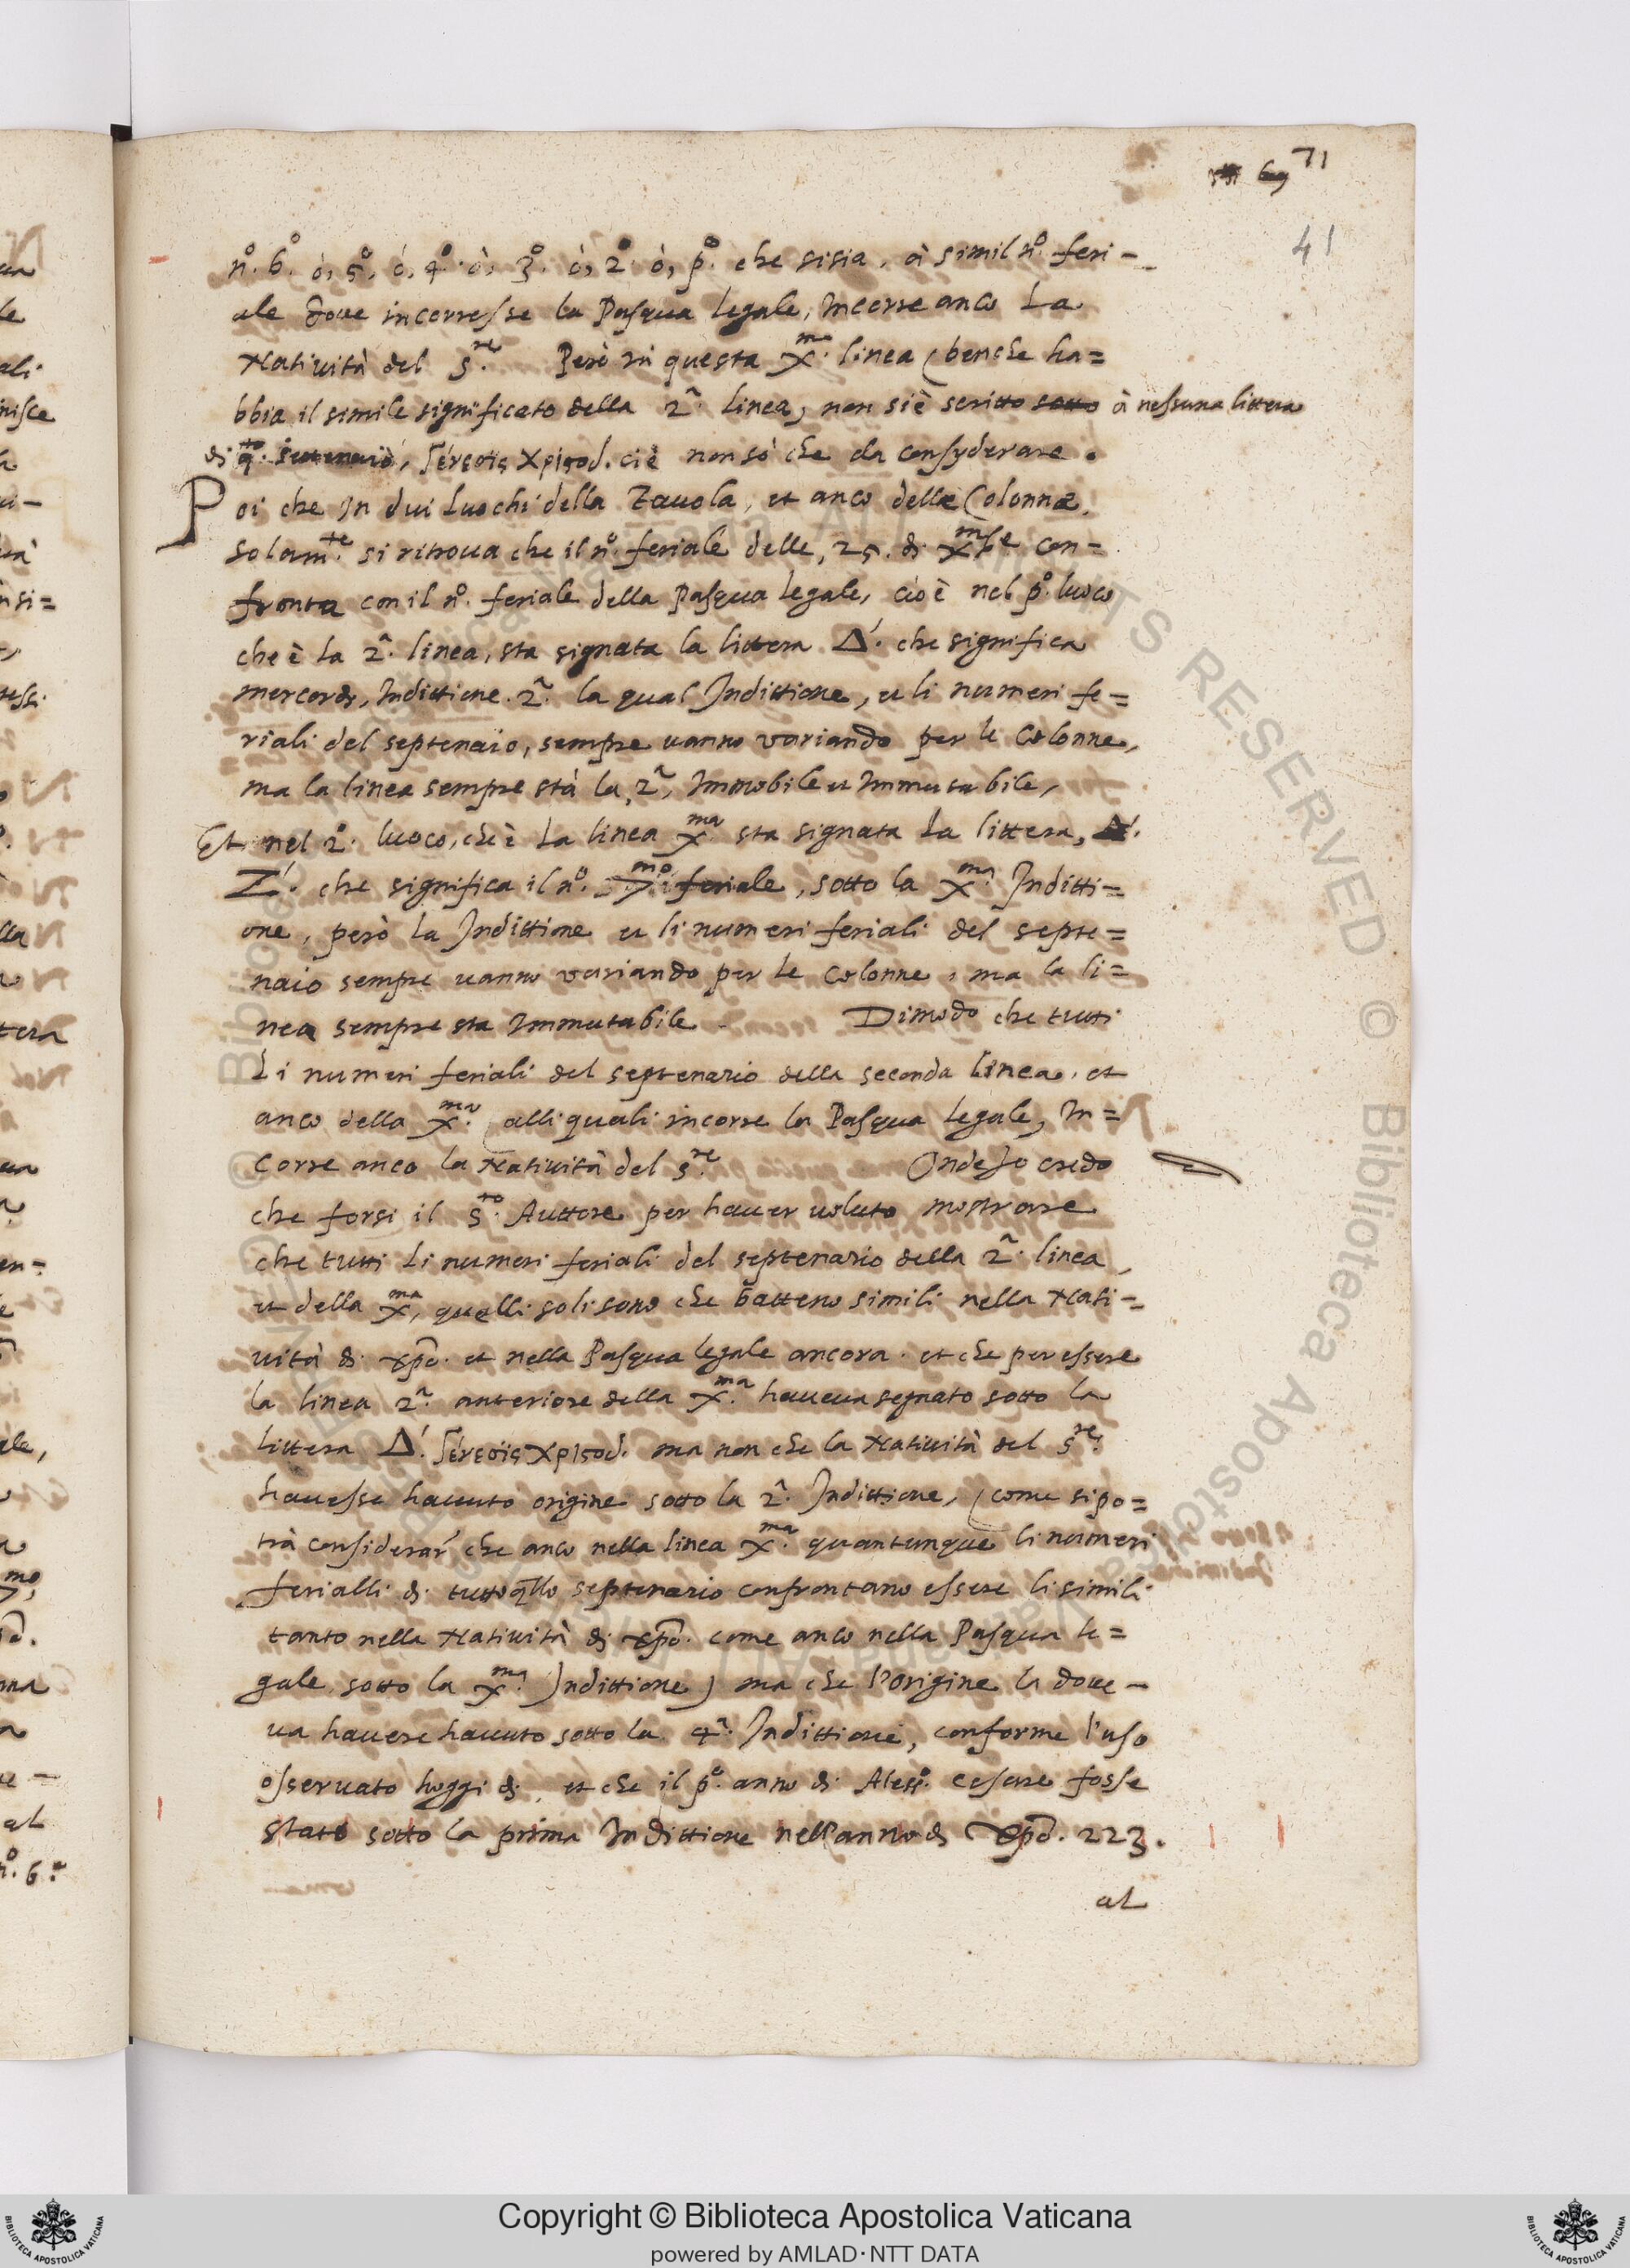 71
41
n.º 6.º ò, 5.º, ò, 4.º ò, 3.º ò, 2.º ò, p.º che si sia, à simil n.º feri-
ale doue incorresse la Pasqua legale, incorre anco La
Natiuità del S.re Però in questa X.ma linea (benche ha=
bbia il simile significato della 2.a linea, non si è scritto sotto à nessuna littera
di 4.to settenaio, γένεσις Χριστοῦ. ci è non sò che da consyderare.
Poi che In dui Luochi della Tauola, et anco delle Colonne,
solam.te si ritroua che il n.º feriale delle, 25. di Xmbre con-
fronta con il n.º feriale della Pasqua legale, cioè nel p.º luoco
che è la 2.a linea, sta signata la littera Δ'. che significa
mercordi, Indittione 2.a la qual Indittione, et li numeri fe=
riali del septenaio, sempre uanno variando per le Colonne,
ma la linea sempre stà la 2.a, Immobile et Immutabile,
Et nel 2.º luoco, che è La linea X.ma sta signata La littera,
Z'. che significa il n.º 7.mo feriale, sotto la X.ma Inditti=
one, però La Indittione et li numeri feriali del septe=
naio sempre uanno variando per le Colonne, ma la li=
nea sempre sta Immutabile. Dimodo che tutti
Li numeri feriali del septenario della seconda linea, et
anco della X.ma (alli quali incorre la Pasqua legale, In=
corre anco la Natiuità del S.re Onde Io credo
che forsi il S.to Auttore per hauer uoluto mostrare
che tutti Li numeri feriali del septenario della 2.a linea,
et della X.ma, quelli soli sono che batteno simili nella Nati-
uità di xpõ. et nella Pasqua legale ancora. et che per essere
la linea 2.a anteriore della X.ma haueua segnato sotto la
littera Δ'. γένεσις Χριστοῦ. ma non che la Natiuità del S.re
hauesse hauuto origine sotto la 2.a Indittione, (come si po=
trà considerar' che anco nella linea X.ma quantunque li numeri
ferialli di tutto q̃llo septenario confrontano essere li simili
tanto nella Natiuità di xpõ. come anco nella Pasqua le=
gale sotto la X.ma Indittione) ma che l'origine la doue-
ua hauere hauuto sotto la 4.a Indittione, conforme l'uso
osseruato hoggi di, et che il p.º anno di Aless.º cesare fosse
stato sotto la prima Indittione nell'anno di Xpõ. 223.
al
Copyright © Biblioteca Apostolica Vaticana
powered by AMLAD·NTT DATA